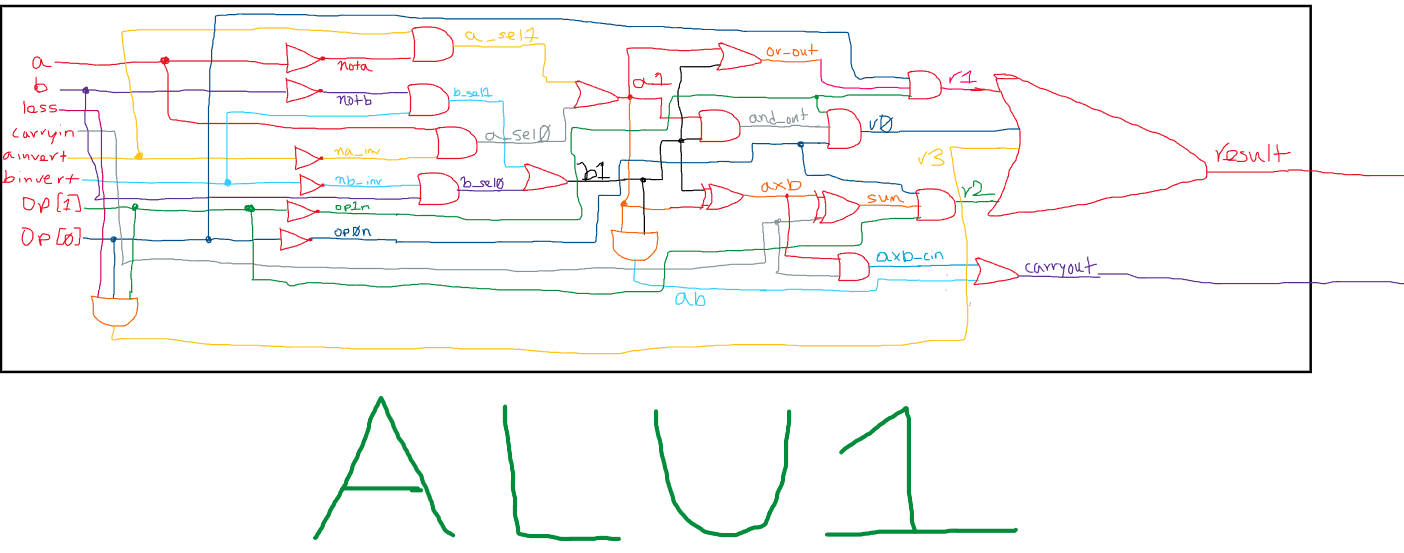 a
b
less
carryin
ainvert
binvert
Op[1]
Op[0]
nota
notb
na_inv
nb_inv
op1n
op0n
a_sel1
b_sel1
a_sel0
b_sel0
a1
b1
or_out
and_out
axb
sum
ab
axb_cin
r1
r0
r3
r2
result
carryout
ALU1